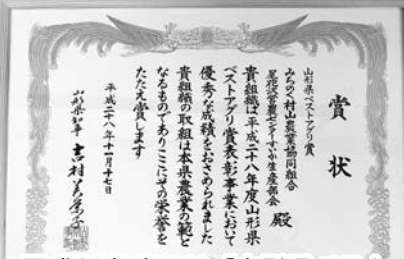 賞状
山形県ベストアグリ賞
みちのく村山農業協同組合
尾花沢営農センターすいか生産部会 殿
貴組織は平成二十八年度山形県
ベストアグリ賞表彰事業において
優秀な成績をおさめられました
貴組織の取組は本県農業の範と
なるものでありここにその栄誉を
たたえ賞します
平成二十八年十一月十七日
山形県知事 吉村美栄子